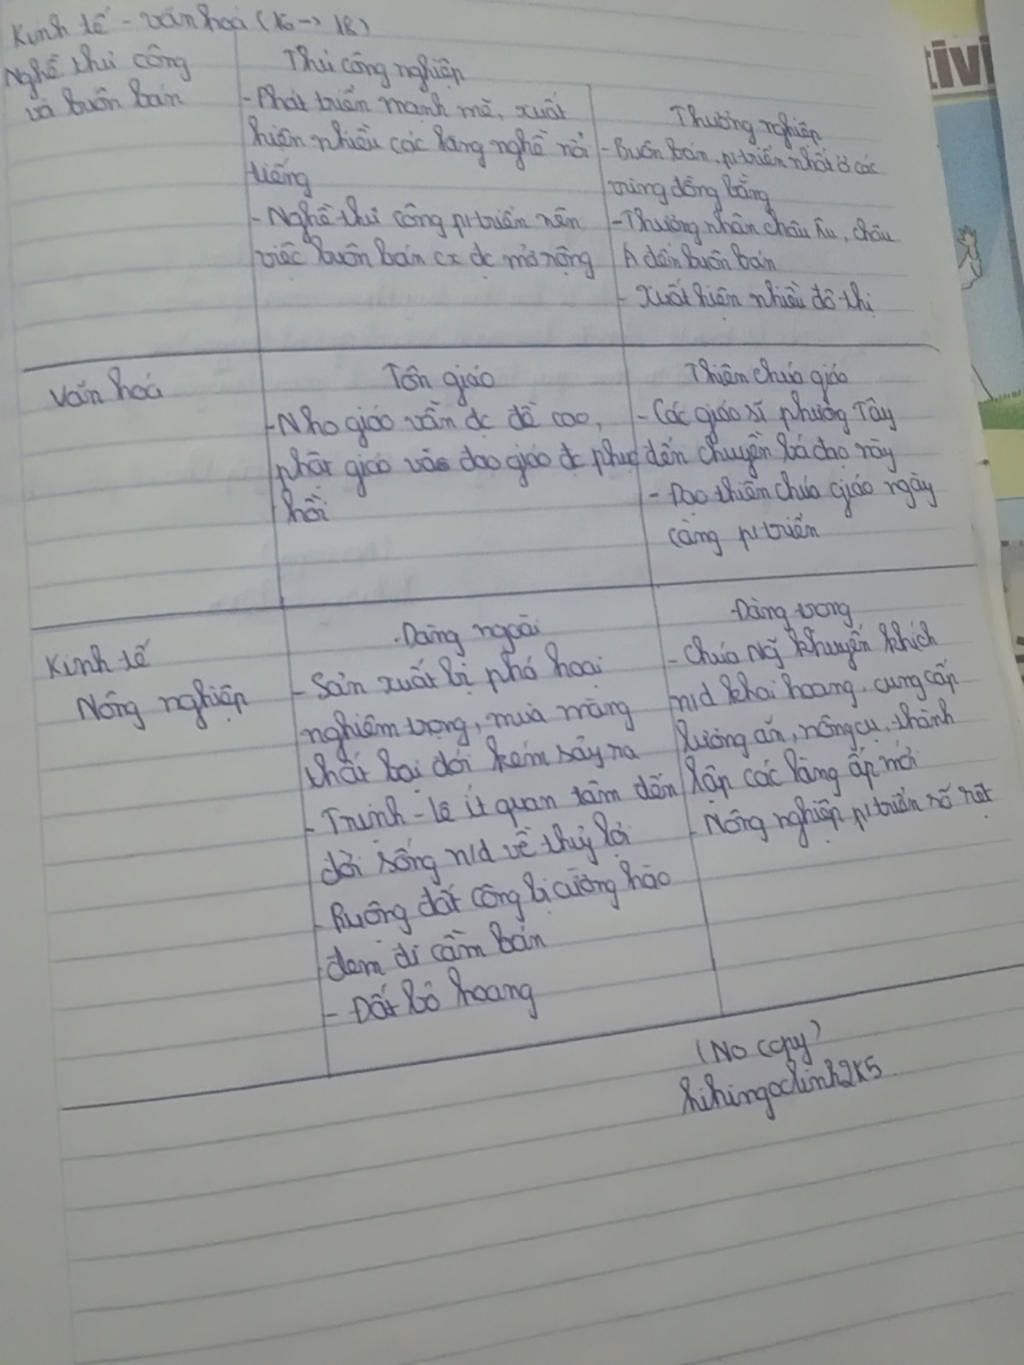 Kinh tế - văn hoá (16 -> 18)
Nghề thủ công
và buôn bán
Thủ công nghiệp
- Phát triển mạnh mẽ, xuất
hiện nhiều các làng nghề nổi
tiếng
- Nghề thủ công p/triển nên
việc buôn bán cx đc mở rộng
Thương nghiệp
- Buôn bán p/triển nhất ở các
vùng đồng bằng
- Thương nhân châu Âu, châu
Á đến buôn bán
- Xuất hiện nhiều đô thị
Văn hoá
Tôn giáo
- Nho giáo vẫn đc đề cao,
phật giáo và đạo giáo đc phục
hồi
Thiên chúa giáo
- Các giáo sĩ phương Tây
đến chuyền bá đạo này
- Đạo thiên chúa giáo ngày
càng p/triển
Kinh tế
Nông nghiệp
Đàng ngoài
- Sản xuất bị phá hoại
nghiêm trọng, mùa màng
thất bại đói kém sảy ra
- Trịnh - lê ít quan tâm đến
đời sống n/d về thuỷ lợi
- Ruộng đất công bị cường hào
đem đi cầm bán
- Đất bỏ hoang
Đàng trong
- Chúa Ng~ khuyến khích
n/d khai hoang, cung cấp
lương ăn, nông cụ, thành
lập các làng ấp mới
- Nông nghiệp p/triển rõ rệt
(No copy)
hihingoclinh2k5
tivi